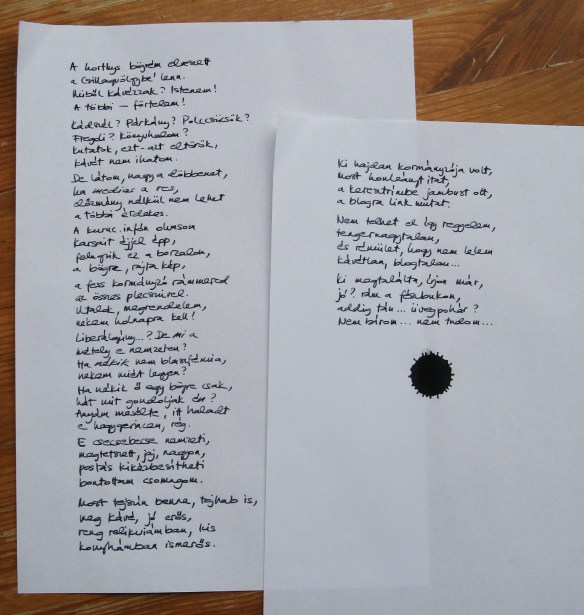 A horthys bögrém elveszett
a Csillagvölgybe' lenn.
Miből kávézzak? Istenem!
A többi — förtelem!
Kádnál? Párkány? Polccsücsök?
Frigdi? Könyvhalom?
Kutatok, ezt-azt eltörök,
kávét nem ihatom.
De látom, nagy a döbbenet,
ha medias a res,
előzmény nélkül nem lehet
a többi érdekes.
A kuruc.infón olvasom
karsait éjjel épp,
felugrik ez a
a bögre, rajta kép,
a fess kormányzó rámmered
az összes plecsnivel.
Utalok, megrendelem,
nekem holnapra kell!
Liberálgúny...? De mi a
métely e nemzeten?
Ha nékik nem blaszfémia,
nekem miért legyen?
Ha nékik ő egy bögre csak,
hát mit gondoljak én?
Anyám mesélte, itt haladt
e nagygerincen, rég.
E csecsebecse nemzeti,
megtetszett, jaj, nagyon,
postás kikézbesítheti
bontottam csomagom.
Most tejszín benne, tejhab is,
meg kávé, jó erős,
reng relikviámban, kis
konyhámban ismerős.
Ki hajdan kormányzója volt,
most honleányt itat,
a keresztrímbe jambust olt,
a blogra link mutat.
Nem telhet el így reggelem,
tengernagytalan,
és rémület, hogy nem lelem
kávétlan, blogtalan...
Ki megtalálta, írjon már,
jó? rám a fészbukon,
addig tán... üvegpohár?
Nem bírom... nem tudom...